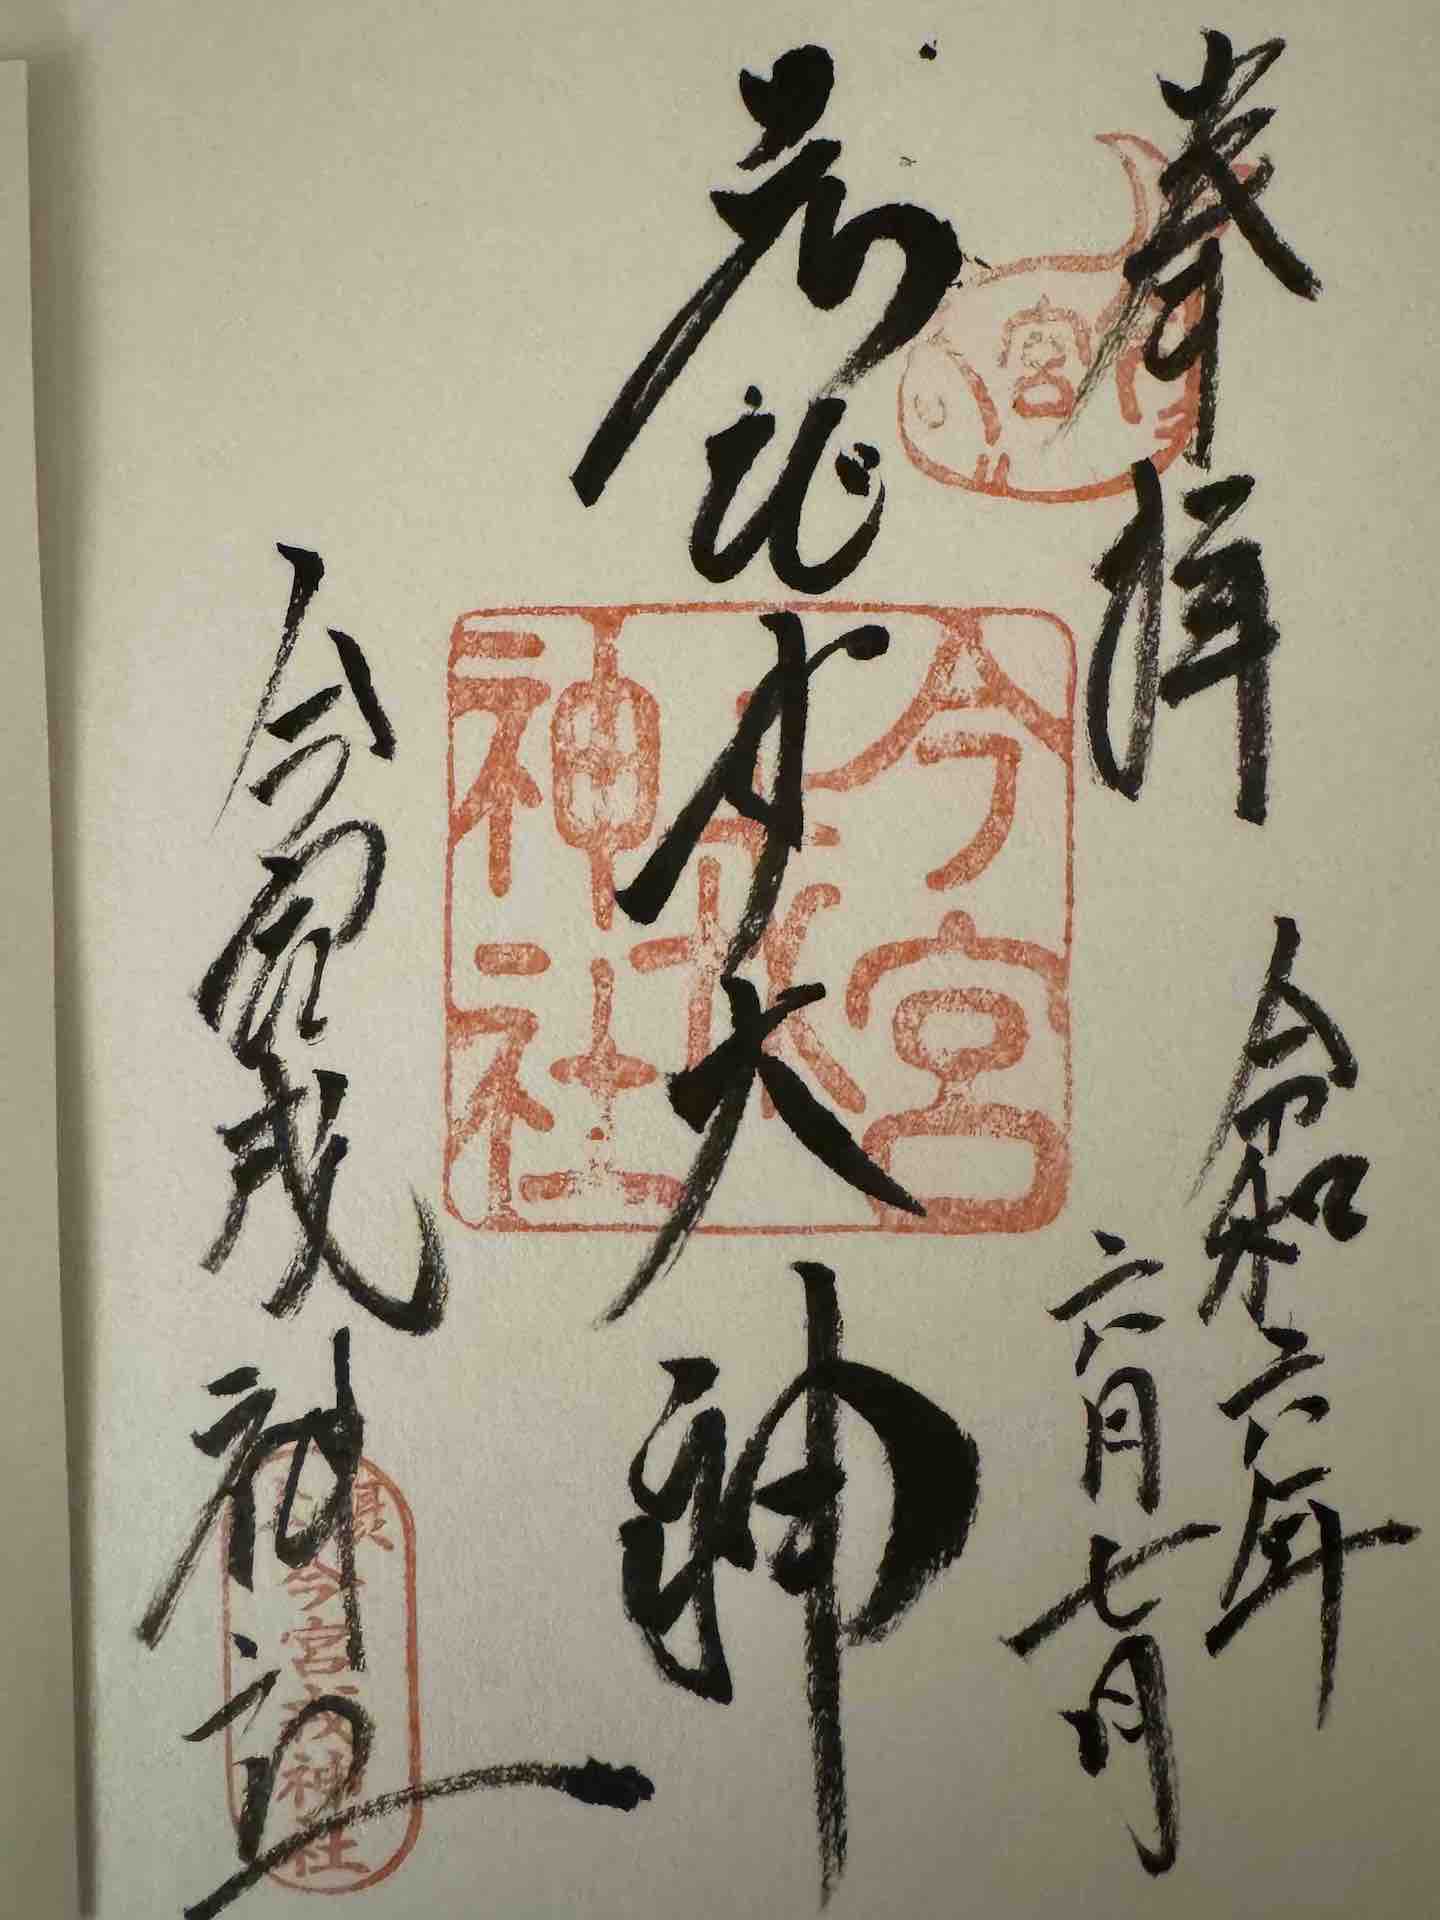 奉拝
令和六年
六月七日
ゑびす大神
今宮戎神社
宮
今宮戎神社
今宮戎神社